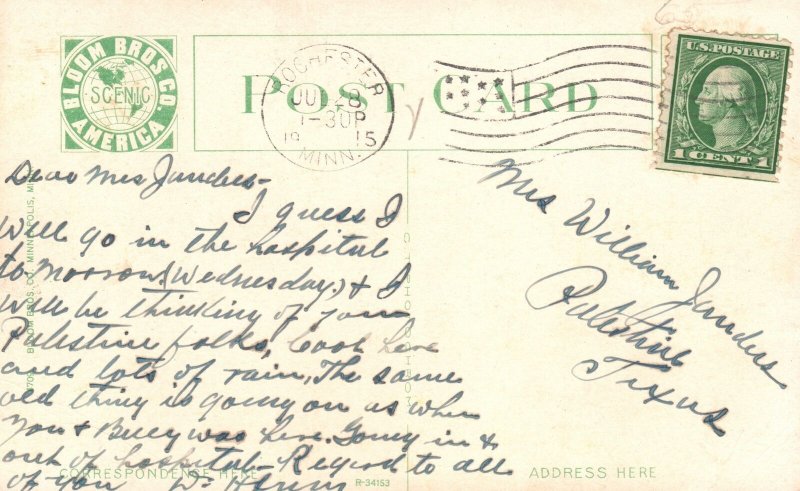 BLOOM BROS. CO.
SCENIC
AMERICA
POST CARD
ROCHESTER
28
1-30P
19 15
MINN.
U.S. POSTAGE
1 CENT 1
Dear Mrs Sanders-
I guess I
will go in the hospital
to morrow (Wednesday) & I
will be thinking of your
Palestine folks, Cool here
and lots of rain, The same
old thing is going on as when
You & Billy was here. Going in &
out of hospital- Regard to all
of you
Mrs William Sanders
Palestine
Texas
BLOOM BROS. CO. MINNEAPOLIS,
CORRESPONDENCE HERE
R-34153
ADDRESS HERE